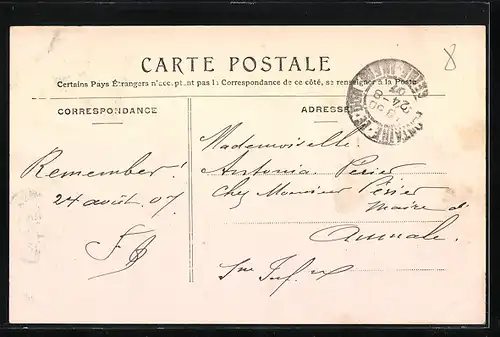 8
CARTE POSTALE
Certains Pays Étrangers n'acceptant pas la Correspondance de ce côté, se renseigner à la Poste
CORRESPONDANCE
ADRESSE
24-8
07
Remember!
24 août 07
Mademoiselle
Antonia Périer
Chez Monsieur Périer
Maire d'
Aumale.
Sne Inf.re